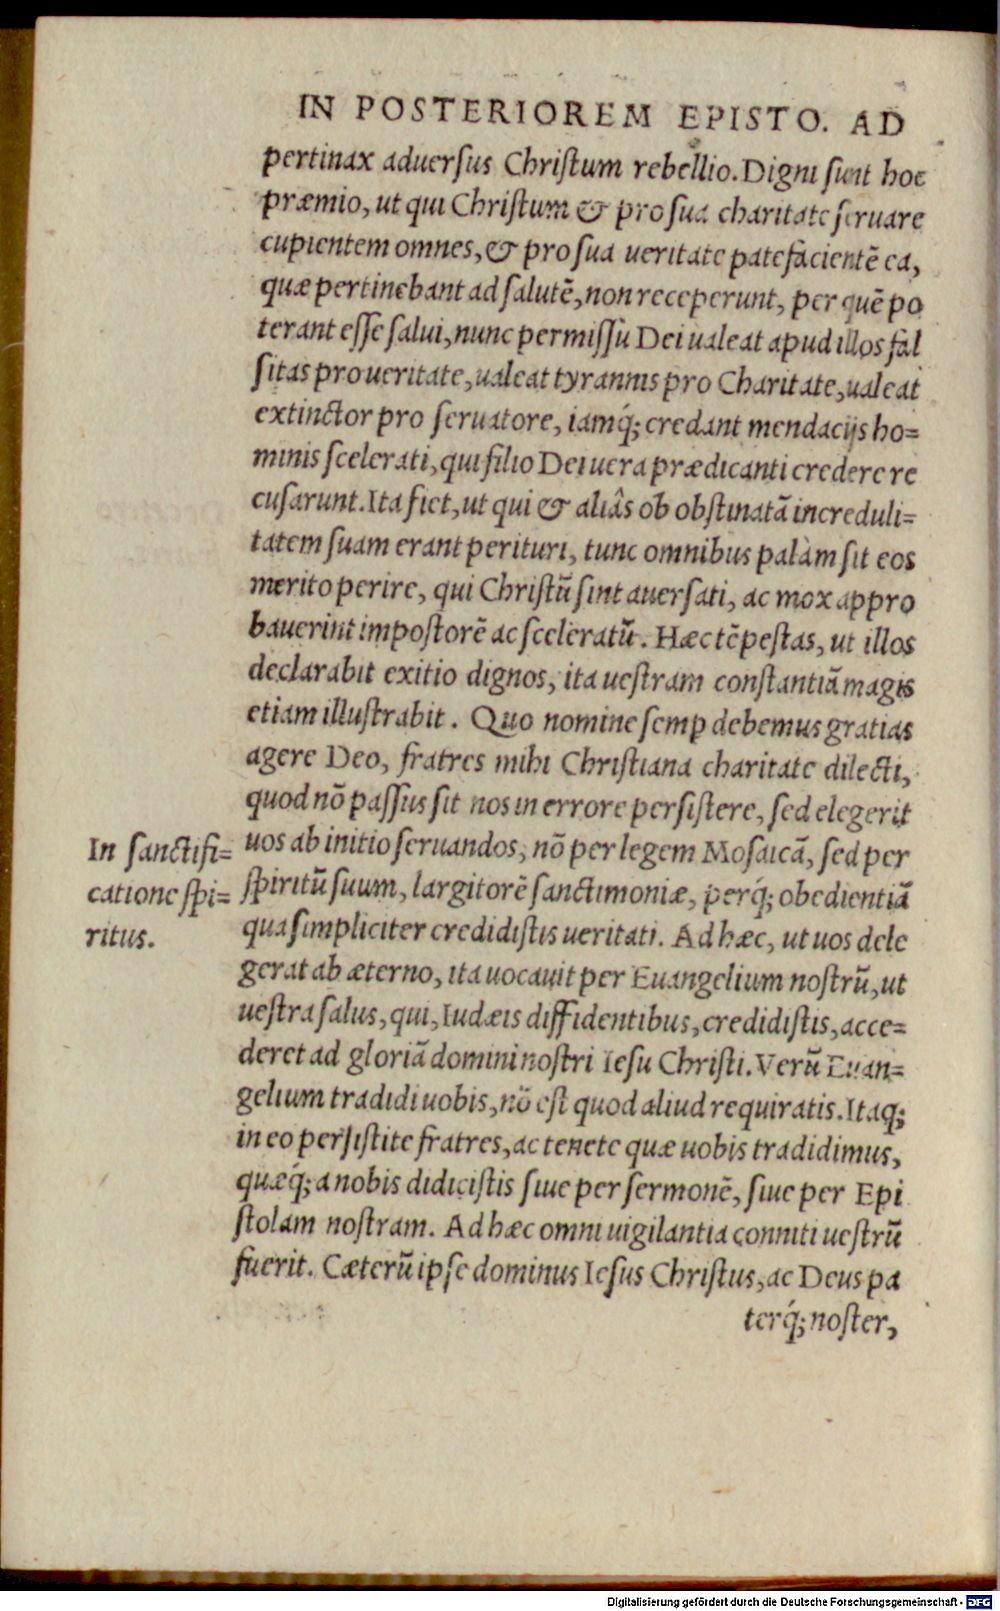 IN POSTERIOREM EPISTO. AD
pertinax aduersus Christum rebellio. Digni sunt hoc
præmio, ut qui Christum & pro sua charitate seruare
cupientem omnes, & pro sua ueritate patefacientē ea,
quæ pertinebant ad salutē, non receperunt, per quē po
terant esse salui, nunc permissu Dei ualeat apud illos fal
sitas pro ueritate, ualeat tyrannis pro Charitate, ualeat
extinctor pro seruatore, iamq́; credant mendacijs ho=
minis scelerati, qui filio Dei uera prædicanti credere re
cusarunt. Ita fiet, ut qui & aliâs ob obstinatā increduli=
tatem suam erant perituri, tunc omnibus palàm sit eos
merito perire, qui Christū sint auersati, ac mox appro
bauerint impostorē ac sceleratū. Hæc tēpestas, ut illos
declarabit exitio dignos, ita uestram constantiā magis
etiam illustrabit. Quo nomine semp debemus gratias
agere Deo, fratres mihi Christiana charitate dilecti,
quod nō passus sit nos in errore persistere, sed elegerit
In sanctifi= uos ab initio seruandos, nō per legem Mosaicā, sed per
catione spi= spiritū suum, largitorē sanctimoniæ, perq́; obedientiā
ritus. qua simpliciter credidistis ueritati. Ad hæc, ut uos dele
gerat ab æterno, ita uocauit per Euangelium nostrū, ut
uestra salus, qui, Iudæis diffidentibus, credidistis, acce=
deret ad gloriā domini nostri Iesu Christi. Verū Euan=
gelium tradidi uobis, nō est quod aliud requiratis. Itaq;
in eo persistite fratres, ac tenete quæ uobis tradidimus,
quæq́; a nobis didicistis siue per sermonē, siue per Epi
stolam nostram. Ad hæc omni uigilantia conniti uestrū
fuerit. Cæterū ipse dominus Iesus Christus, ac Deus pa
terq́; noster,
Digitalisierung gefördert durch die Deutsche Forschungsgemeinschaft - DFG